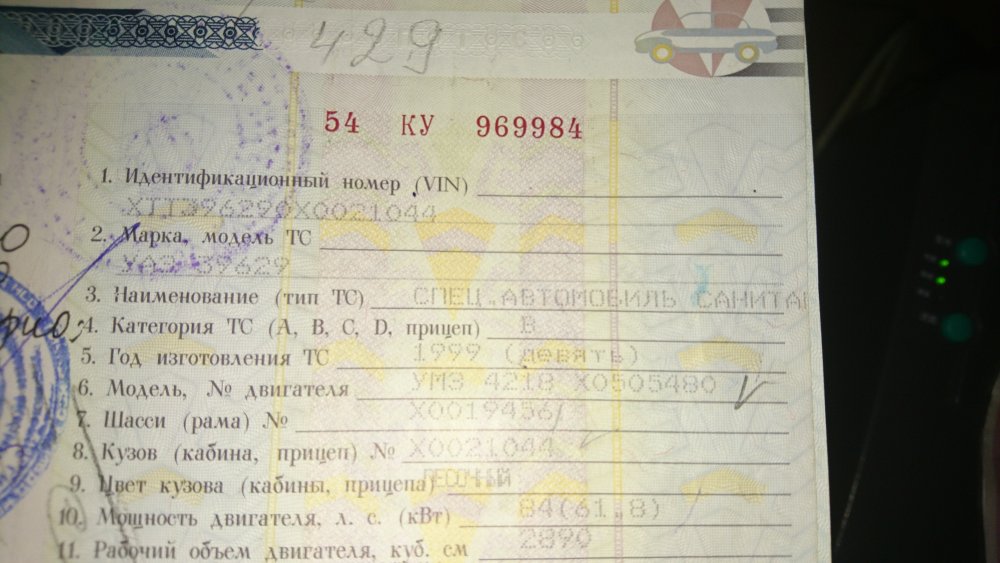 429
54 КУ 969984
1. Идентификационный номер (VIN)
XTT396290X0021044
2. Марка, модель ТС
УАЗ 39629
3. Наименование (тип ТС) СПЕЦ.АВТОМОБИЛЬ САНИТАР
4. Категория ТС (A, B, C, D, прицеп) B
5. Год изготовления ТС 1999 (девять)
6. Модель, № двигателя УМЗ 4218 X0505480
7. Шасси (рама) № X0019456
8. Кузов (кабина, прицеп) № X0021044
9. Цвет кузова (кабины, прицепа) ПЕСОЧНЫЙ
10. Мощность двигателя, л. с. (кВт) 84(61.8)
11. Рабочий объем двигателя, куб. см 2890